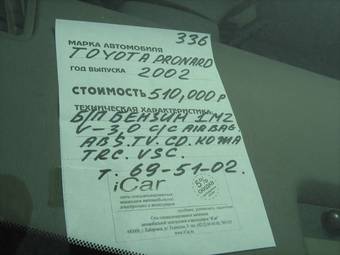 336
МАРКА АВТОМОБИЛЯ
TOYOTA PRONARD
ГОД ВЫПУСКА 2002
СТОИМОСТЬ 510,000 р
ТЕХНИЧЕСКАЯ ХАРАКТЕРИСТИКА
Б/П БЕНЗИН 1MZ
V-3,0 С/С AIRBAG.
ABS. TV. CD. КОЖА
TRC. VSC.
т. 69-51-02.
iCar
5%
СКИДКИ